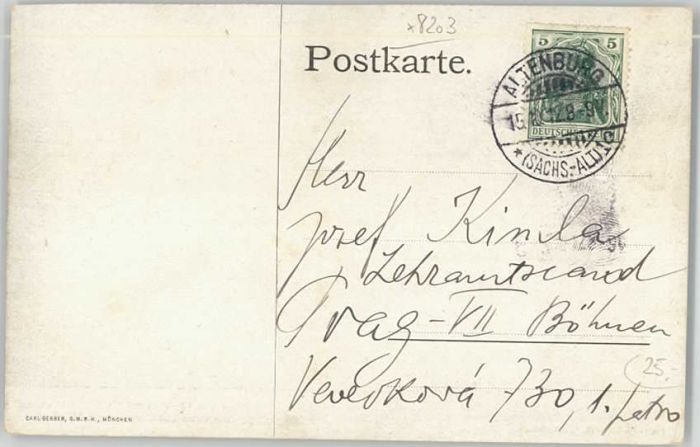 x8203
Postkarte.
5 5
DEUTSCHES
ALTENBURG
15. 12.8-9V.
* (SACHS.-ALT.) 1c
Herr
Josef Kinla
Lehramtscand
Prag-VII Böhmen
Veverková 730, 1. patro
(25.-
CARL GERBER, G.M.B.H., MÜNCHEN